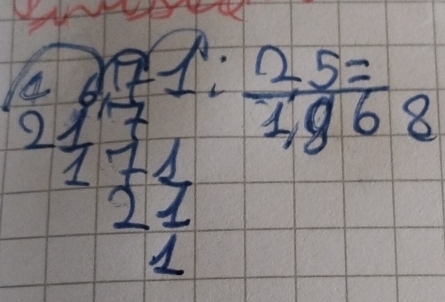 46,71: 25=
217 1,868
171
21
1